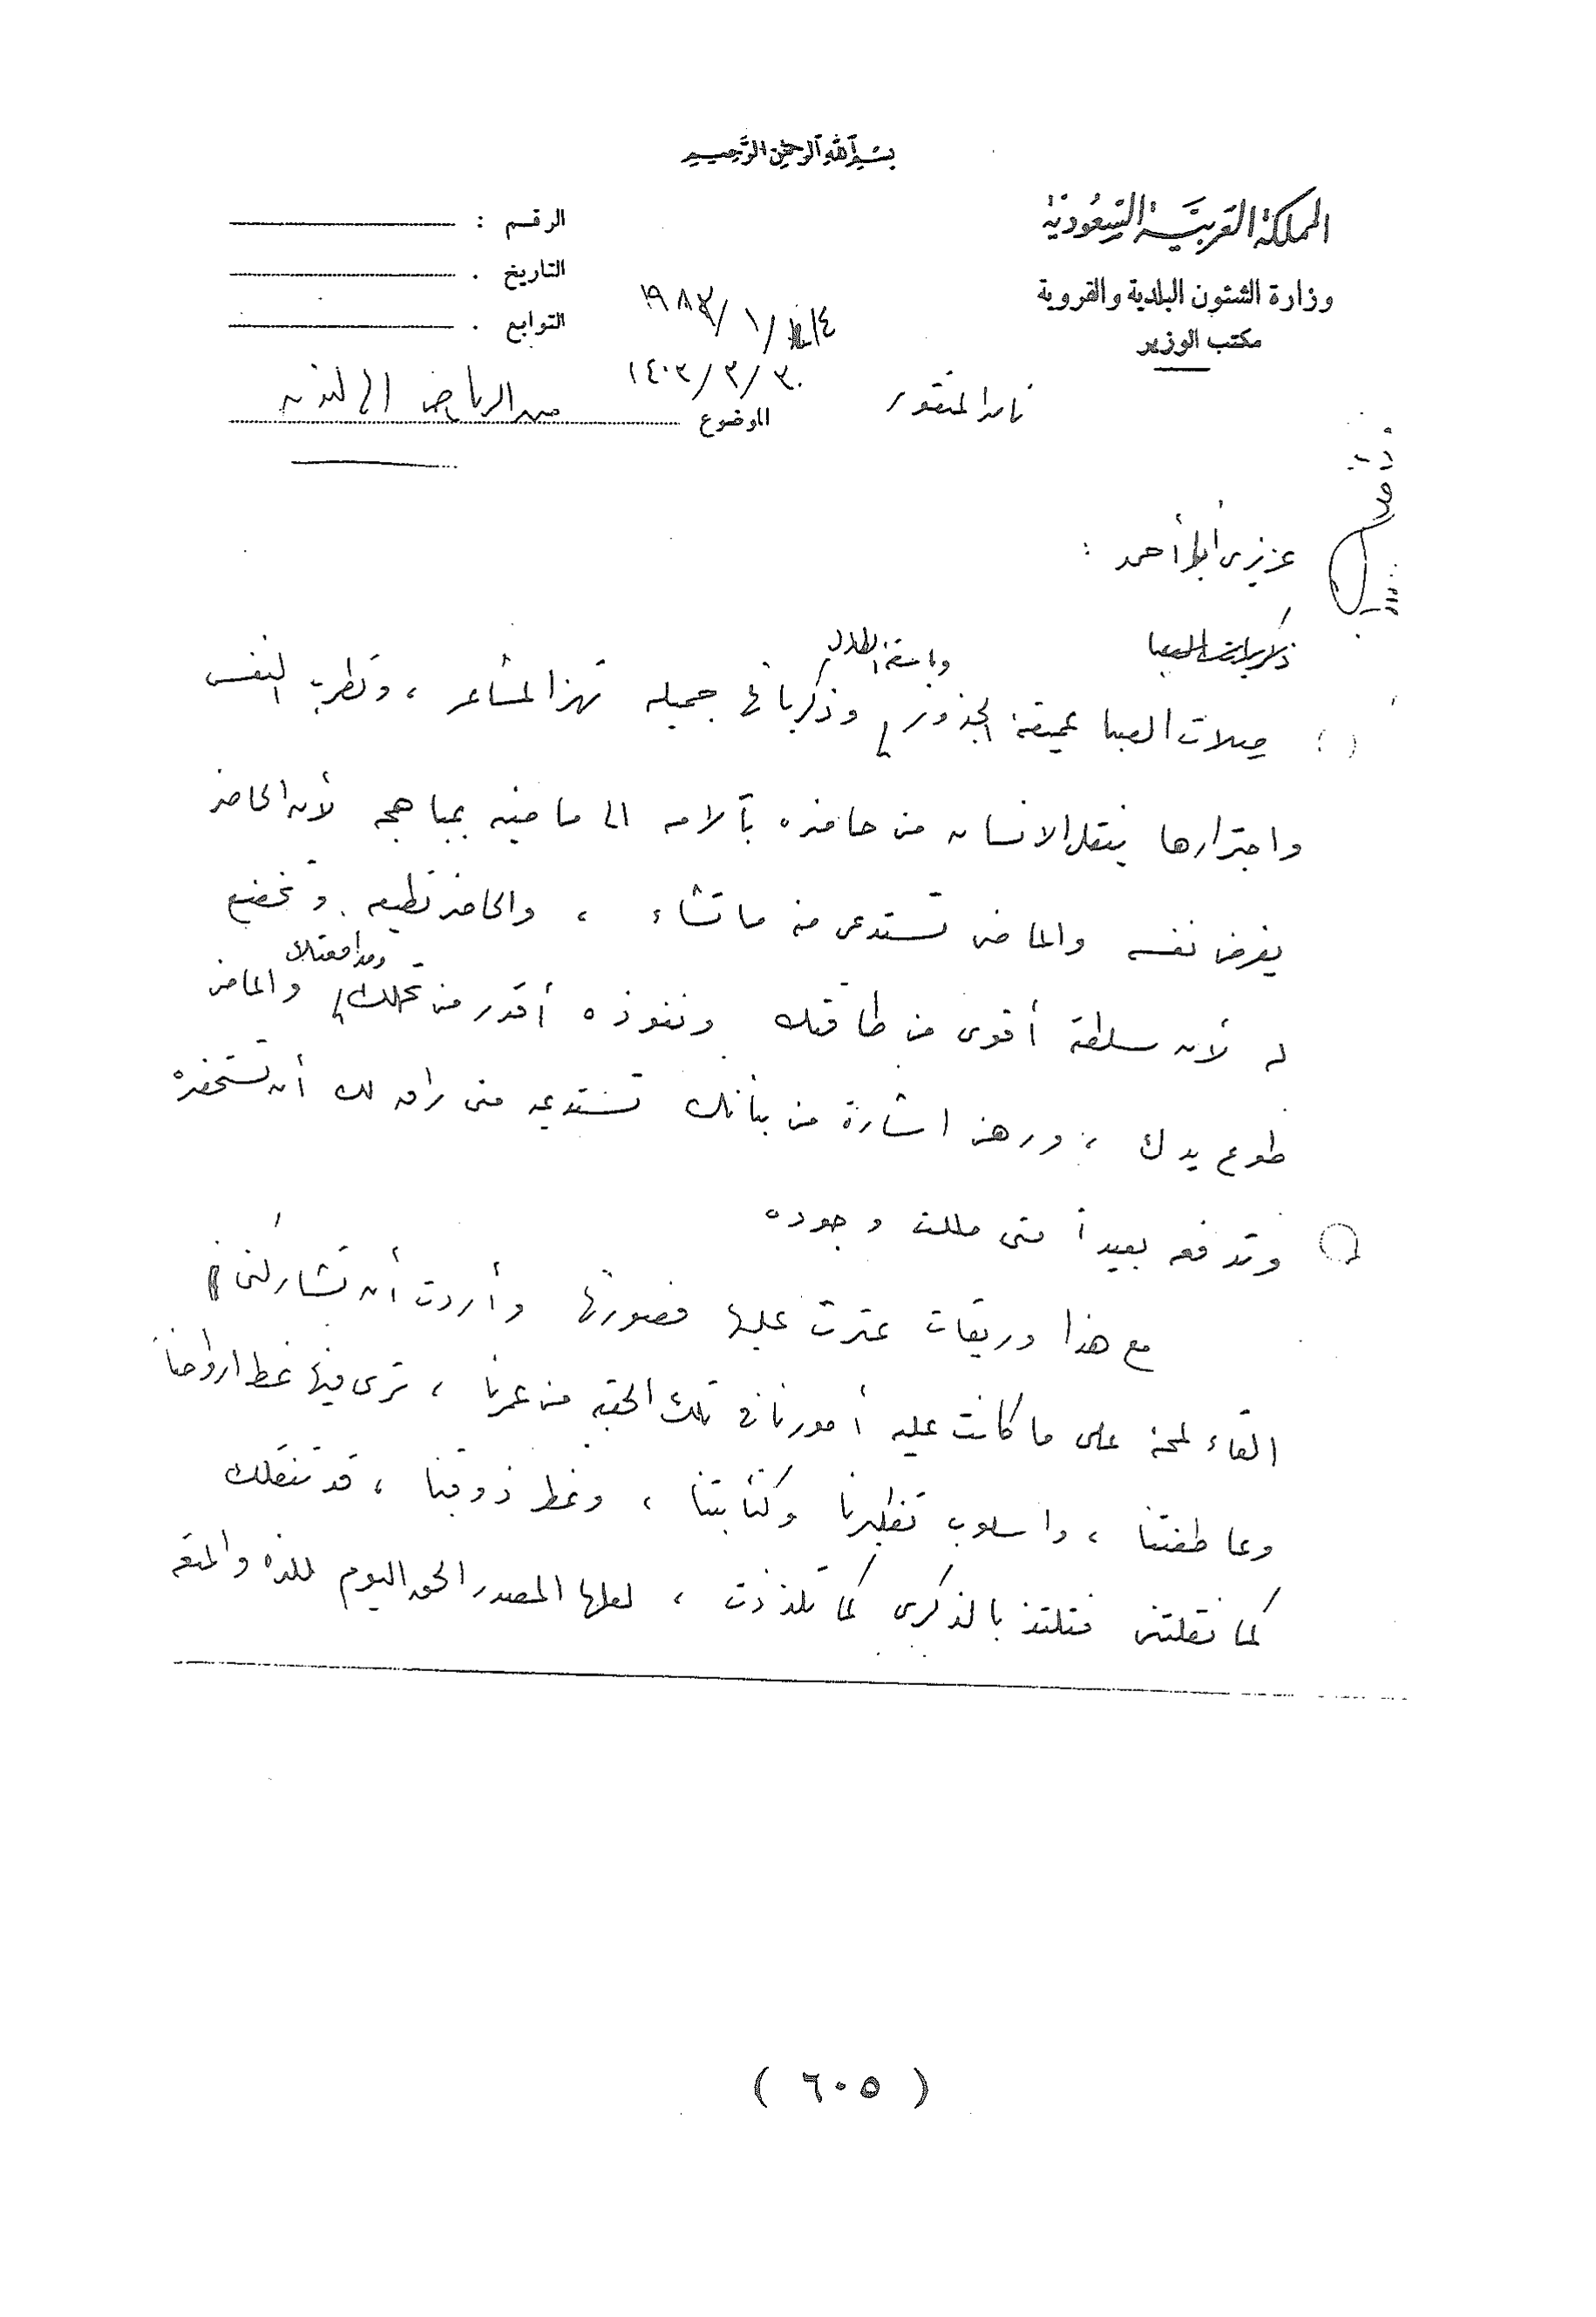 بسم الله الرحمن الرحيم
المملكة العربية السعودية
وزارة الشئون البلدية والقروية
مكتب الوزير
الرقم :
التاريخ .
التوابع .
١٤/١/١٩٨٣
٣٠/٣/١٤٠٣
ناصر المنقور
الموضوع من الرياض الى لندن
عزيزى أبا أحمد :
ذكريات الصبا
صلات الصبا عميقة الجذور وباسقة الظلال وذكرياتى جميله تهز المشاعر ، وتطرب النفس
واجترارها ينقل الانسان من حاضره بآلامه الى ماضيه بمباهجه لأن الحاضر
يفرض نفسه والماضى تستدعى منه ما تشاء ، والحاضر تطيعه وتخضع
له لأن سلطته أقوى من طاقتك ونفوذه أقدر من تحملك ومدافعتك والماضى
طوع يدك ، ورهن اشارة من بنانك تستدعيه متى راق لك أن تستحضره
وتدفعه بعيداً متى مللت وجوده
مع هذا وريقات عثرت عليها فصورتها وأردت أن تشاركنى
القاء لمحة على ما كانت عليه أمورنا فى تلك الحقبه من عمرنا ، ترى فيها نمط ارواحنا
وعاطفتنا ، واسلوب تفكيرنا وكتابتنا ، ونمط ذوقنا ، قد تنقلك
كما نقلتنى فتلتذ بالذكرى كما تلذذت ، لعلها المصدر الحق اليوم للذه والمتعه
( ٦٠٥ )